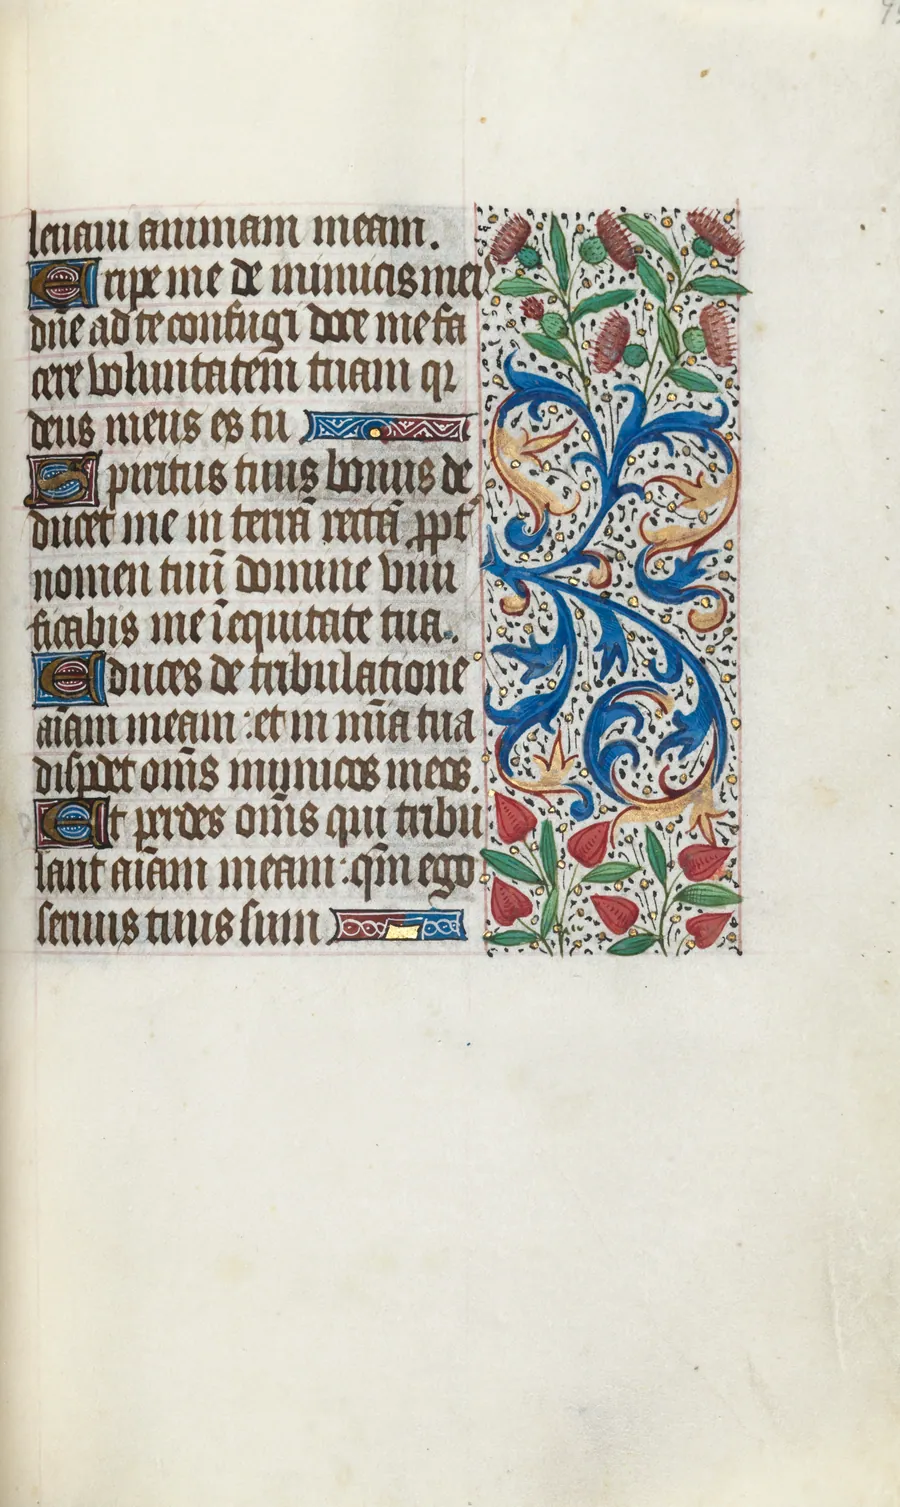 leuaui animam meam.
Eripe me de inimicis meis
dn̄e ad te confugi doce me fa
cere voluntatem tuam qꝛ
deus meus es tu
Spiritus tuus bonus de
ducet me in terrā rectā ꝓpt̄
nomen tuū domine viui
ficabis me ī equitate tua.
Educes de tribulatione
aīam meam : et in mīa tua
disꝑdet om̄s inimicos meos.
Et ꝑdes om̄s qui tribu
lant aīam meam : qm̄ ego
seruus tuus sum